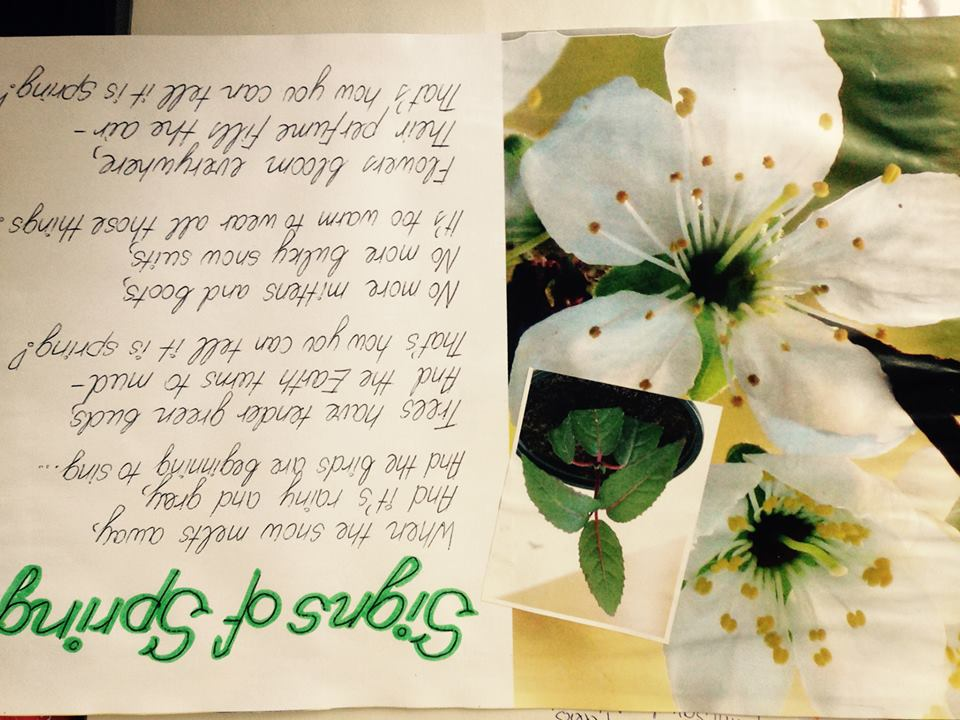 Signs of Spring
When the snow melts away,
And it's rainy and gray,
And the birds are beginning to sing...
Trees have tender green buds
And the Earth turns to mud-
That's how you can tell it is spring!
No more mittens and boots,
No more bulky snow suits,
It's too warm to wear all those things.
Flowers bloom everywhere,
Their perfume fills the air-
That's how you can tell it is spring!